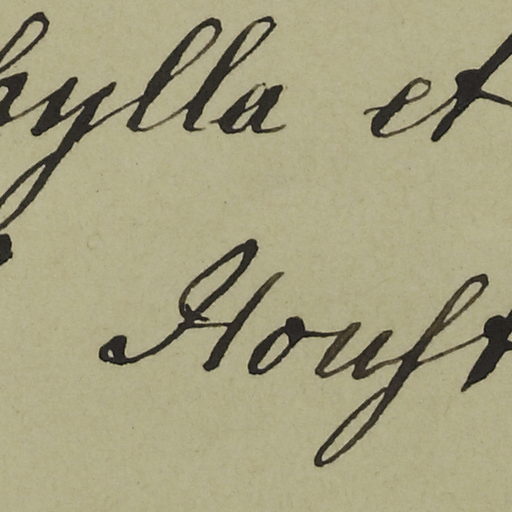 hylla et
Houſt